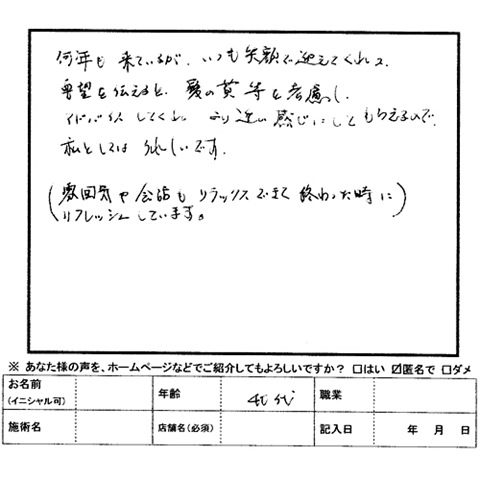 何年も来ているが、いつも笑顔で迎えてくれて、
希望を伝えると、髪の質等を考慮し、
アドバイスしてくれ、より近い感じにしてもらえるので、
私としてはうれしいです。
(雰囲気や会話もリラックスできて終わった時に
リフレッシュしています。)
※ あなた様の声を、ホームページなどでご紹介してもよろしいですか? □はい ☑匿名で □ダメ
お名前 年齢 40代 職業
(イニシャル可)
施術名 店舗名(必須) 記入日 年 月 日